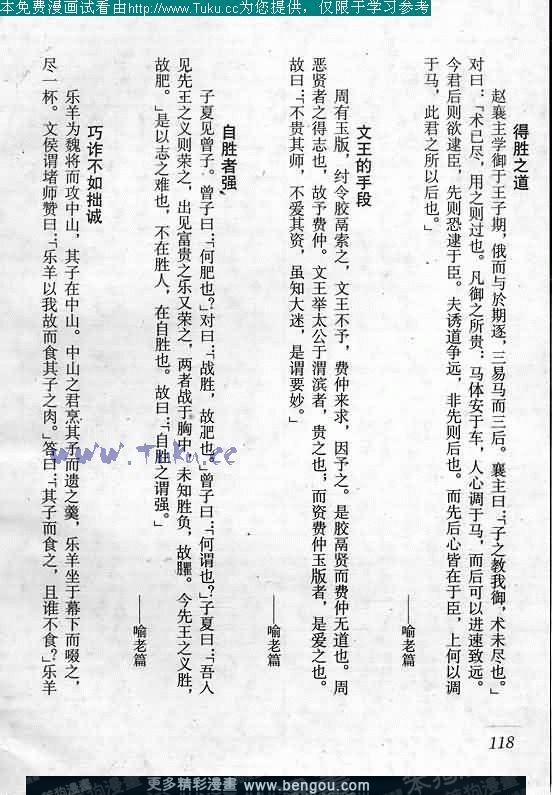 本免费漫画试看由http://www.Tuku.cc为您提供，仅限于学习参考
得胜之道
赵襄主学御于王子期，俄而与於期逐，三易马而三后。襄主曰：「子之教我御，术未尽也。」
对曰：「术已尽，用之则过也。凡御之所贵：马体安于车，人心调于马，而后可以进速致远。
今君后则欲逮臣，先则恐逮于臣。夫诱道争远，非先则后也。而先后心皆在于臣，上何以调
于马，此君之所以后也。」
——喻老篇
文王的手段
周有玉版，纣令胶鬲索之，文王不予，费仲来求，因予之。是胶鬲贤而费仲无道也。周
恶贤者之得志也，故予费仲。文王举太公于渭滨者，贵之也；而资费仲玉版者，是爱之也。
故曰：「不贵其师，不爱其资，虽知大迷，是谓要妙。」
——喻老篇
自胜者强
子夏见曾子。曾子曰：「何肥也？」对曰：「战胜，故肥也。」曾子曰：「何谓也？」子夏曰：「吾入
见先王之义则荣之，出见富贵之乐又荣之，两者战于胸中，未知胜负，故臞。今先王之义胜，
故肥。」是以志之难也，不在胜人，在自胜也。故曰：「自胜之谓强。」
——喻老篇
巧诈不如拙诚
乐羊为魏将而攻中山，其子在中山。中山之君烹其子而遗之羹，乐羊坐于幕下而啜之，
尽一杯。文侯谓堵师赞曰：「乐羊以我故而食其子之肉。」答曰：「其子而食之，且谁不食？」乐羊
www.Tuku.cc
118
更多精彩漫画 www.bengou.com